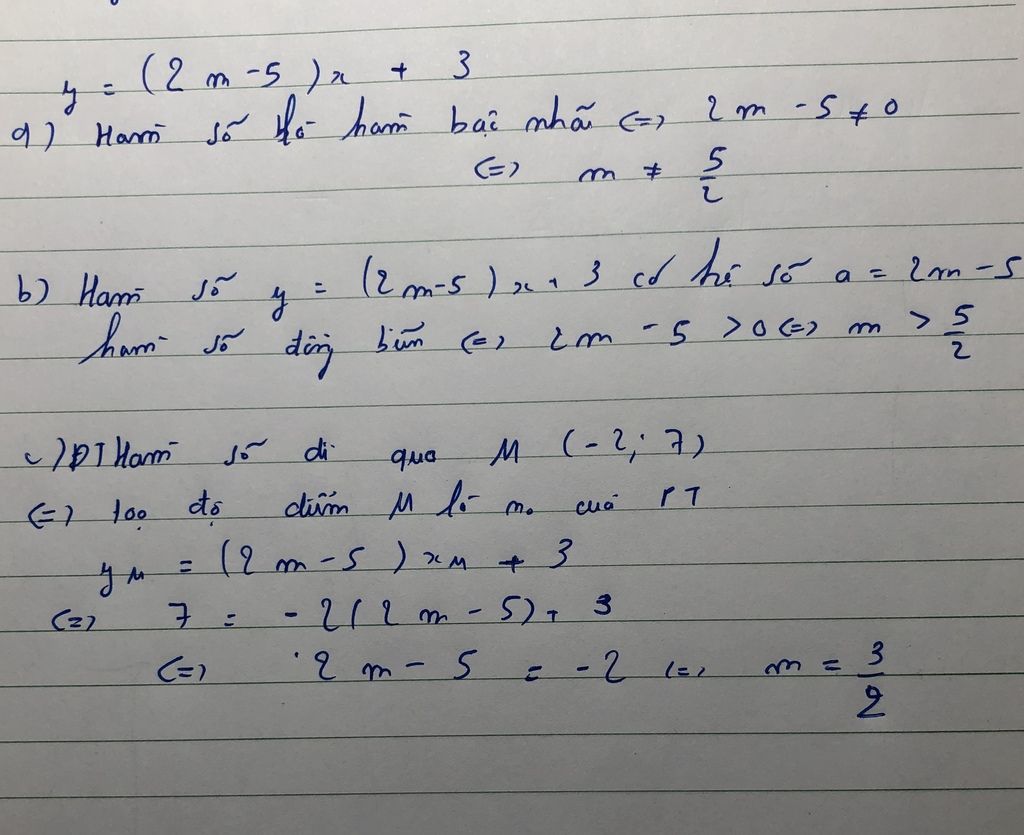 y = (2m-5)x + 3
a) Hàm số là hàm bậc nhất <=> 2m - 5 ≠ 0
<=> m ≠ 5/2
b) Hàm số y = (2m-5)x + 3 có hệ số a = 2m - 5
hàm số đồng biến <=> 2m - 5 > 0 <=> m > 5/2
c) ĐT Hàm số đi qua M (-2; 7)
<=> toạ độ điểm M là n0 của PT
yM = (2m-5)xM + 3
<=> 7 = -2(2m-5) + 3
<=> 2m - 5 = -2 <=> m = 3/2